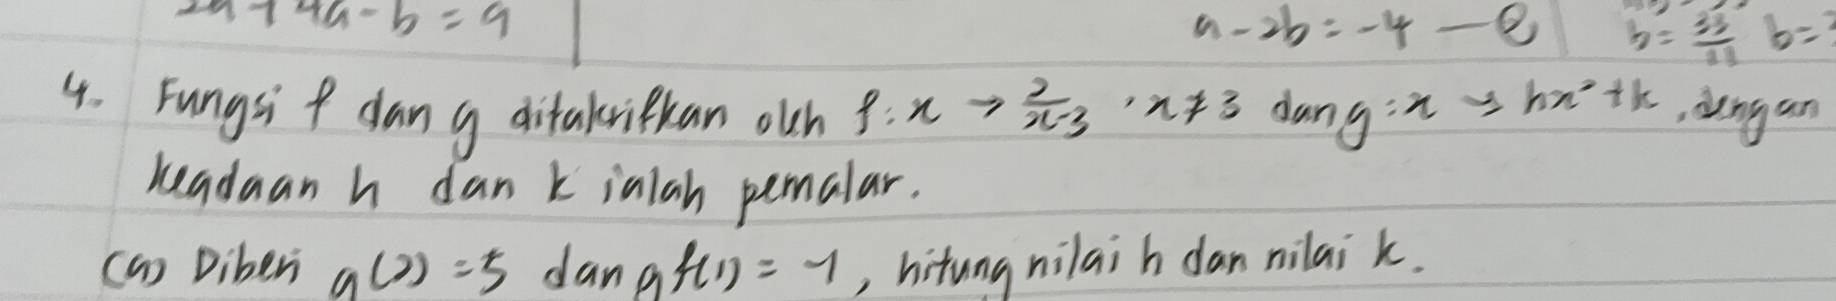 2a + 4a - b = 9
a - 2b = -4 — ②
b = 33/11 b =
4. Fungsi f dan g ditakrifkan oleh f : x → 2/x-3 , x ≠ 3 dan g : x → hx² + k , dengan
keadaan h dan k ialah pemalar.
(a) Diberi g(2) = 5 dan gf(1) = -1, hitung nilai h dan nilai k.